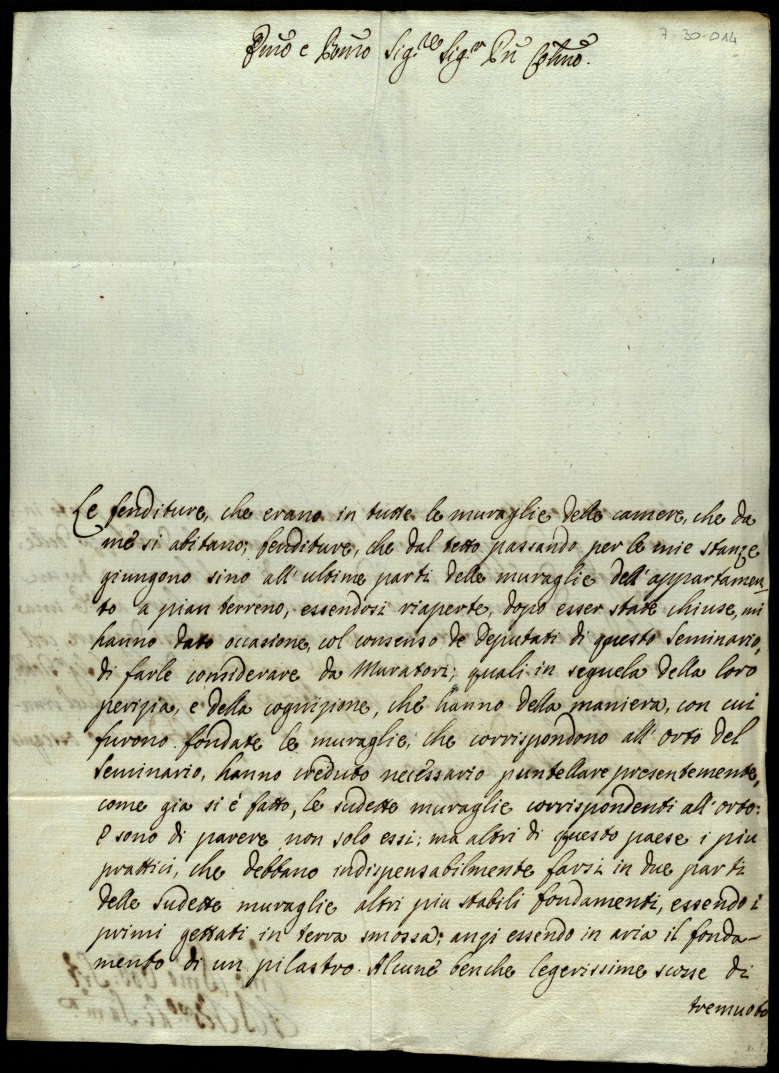 7-30-014
Emō e Rmō Sig.re Sig.r Pñ Colmō.
Le fenditure, che erano in tutte le muraglie delle camere, che da
me si abitano; fenditure, che dal tetto passando per le mie stanze
giungono sino all'ultime parti delle muraglie dell'appartamen-
to a pian terreno, essendosi riaperte, dopo esser state chiuse, mi
hanno dato occasione, col consenso de Deputati di questo Seminario,
di farle considerare da Muratori; quali in sequela della loro
perizia, e della cognizione, che hanno della maniera, con cui
furono fondate le muraglie, che corrispondono all'orto del
Seminario, hanno creduto necessario puntellare presentemente,
come gia si è fatto, le sudette muraglie corrispondenti all'orto:
E sono di parere non solo essi; ma altri di questo paese i piu
prattici, che debbano indispensabilmente farsi in due parti
delle sudette muraglie altri piu stabili fondamenti, essendo i
primi gettati in terra smossa; anzi essendo in aria il fonda-
mento di un pilastro. Alcune benche legerissime scosse di
tremuoto